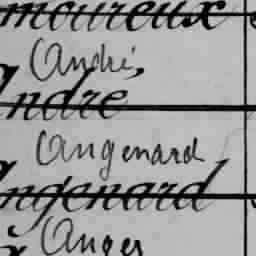 moureux
André,
ndré
Angenard
ngenard
Anger